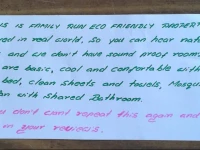 IS IS FAMILY RUN ECO FRIENDLY PROPERT
red in real world. So you can hear natu
and we don't have sound proof rooms
are basic, cool and confortable with
bed, clean sheets and towels, Mosqu
an with shared Bathroom.
u don't cant repeat this again and
in your reviews.